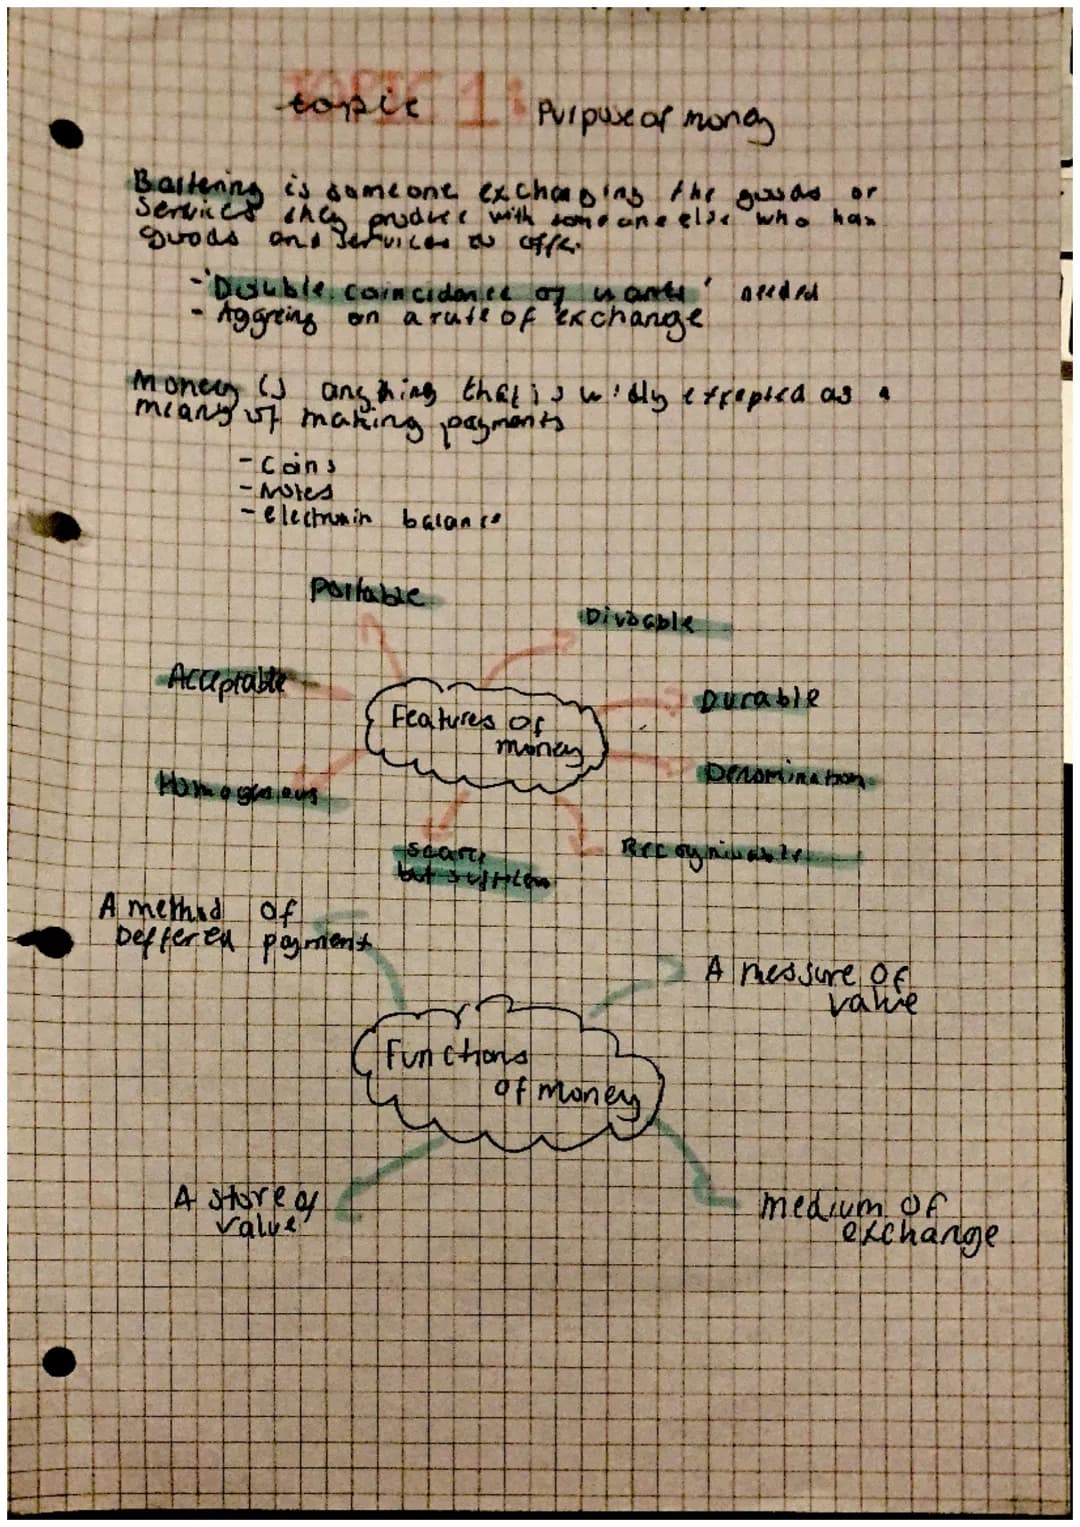 TOPIC 1:
topic Purpose of money
Bartering is someone exchanging the goods or
services they produce with someone else who has
goods and services to offer.
- 'Double coincidence of wants' needed
- Aggreing on a rate of exchange
Money is anything that is widly excepted as a
means of making payments
- Coins
- Notes
- electronin balance
Portable
Divisable
Acceptable
Features of
money
Durable
Denomination
Homogenous
Scarce
but
Recognisable
A method of
Deffered payment
A messure of
value
Functions
of money
A store of
value
medium of
exchange